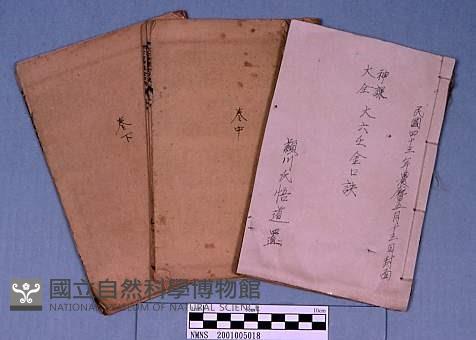 民國四十三年農曆五月十五日封面
神課
大全 大六壬金口訣
穎川氏悟道置
卷中
卷下
國立自然科學博物館
NATIONAL MUSEUM OF NATURAL SCIENCE
10cm
NMNS 2001005018